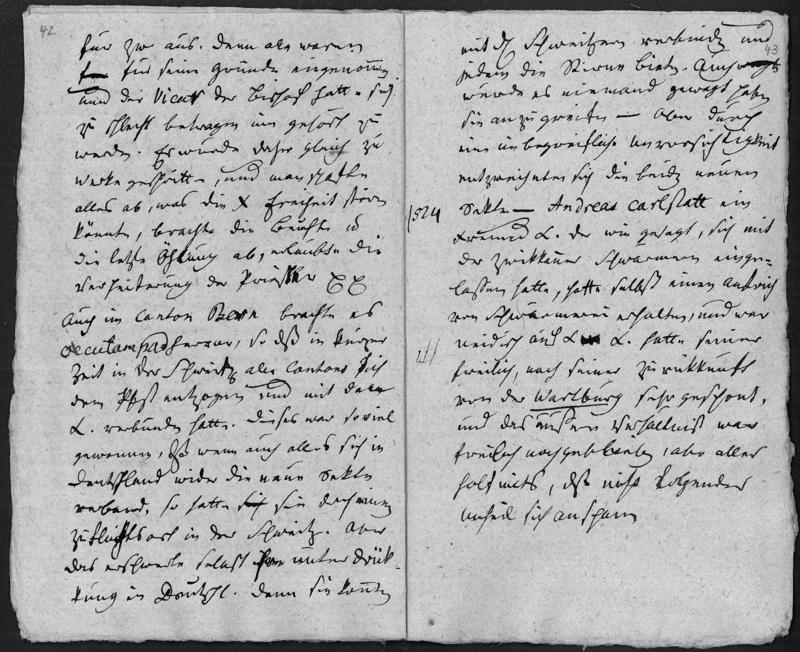 42
für zw aus. denn alle waren
für seine gründe eingenommen
und der Vicar der Bischof hatte sich
zu schlecht betragen um gehört zu
werden. Es wurde daher gleich zu
Werke geschritten, und man schaffte
alles ab, was die X Freiheit stören
könnte, brachte die Beichte u
die letzte Öhlung ab, erlaubte die
Verheiterung der Priester
Auch im Canton Bern brachte es
Oecolampad hervor, so dß in kurzer
Zeit in der Schweitz alle Cantons sich
dem Pbst entzogen und mit dem
L. verbunden hatten. dieses war soviel
gewonnen, dß wenn auch alles sich in
deutschland wider die neue Sekte
verband, so hatte sie dochnung
zufluchtsort in der Schweitz. Aber
das erschwerte selbst unterdrük-
kung in Deutschl. denn sie konnten
43
mit den Schweitzern verbindet und
jedem die Stirne bieten.
würde es niemand gewagt haben
sie anzugreifen — Aber durch
eine unbegreifliche Unvorsichtigkeit
entzweiheten sich die beide neuen
Sekten — Andreas Carlstatt ein
1524
Freund L. der wie gesagt, sich mit
der Zwickauer Schwärmern einge-
lassen hatte, hatte selbst einen Anstrich
von Schwärmerei erhalten, und war
neidisch auf L. L. hatte seiner
freilich, nach seiner Zurükkunft
von der Wartburg sehr geschont,
und das äussere Verhältniß war
freilich nachgeblieben, aber alles
half nichts, dß nicht folgender
Unheil sich anspann